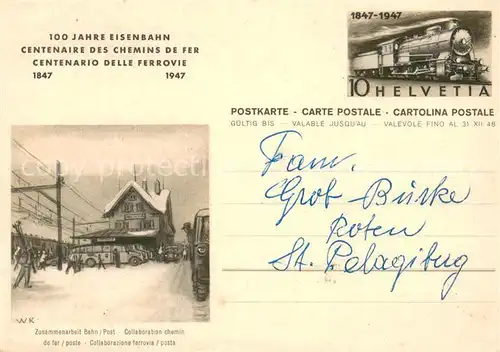 100 JAHRE EISENBAHN
CENTENAIRE DES CHEMINS DE FER
CENTENARIO DELLE FERROVIE
1847 1947
1847-1947
10 HELVETIA
POSTKARTE - CARTE POSTALE - CARTOLINA POSTALE
GÜLTIG BIS — VALABLE JUSQU'AU — VALEVOLE FINO AL 31 XII 48
Fam.
Grob-Bürke
Roten
St. Pelagibug
WK
Zusammenarbeit Bahn/Post - Collaboration chemin
de fer/poste - Collaborazione ferrovia/posta